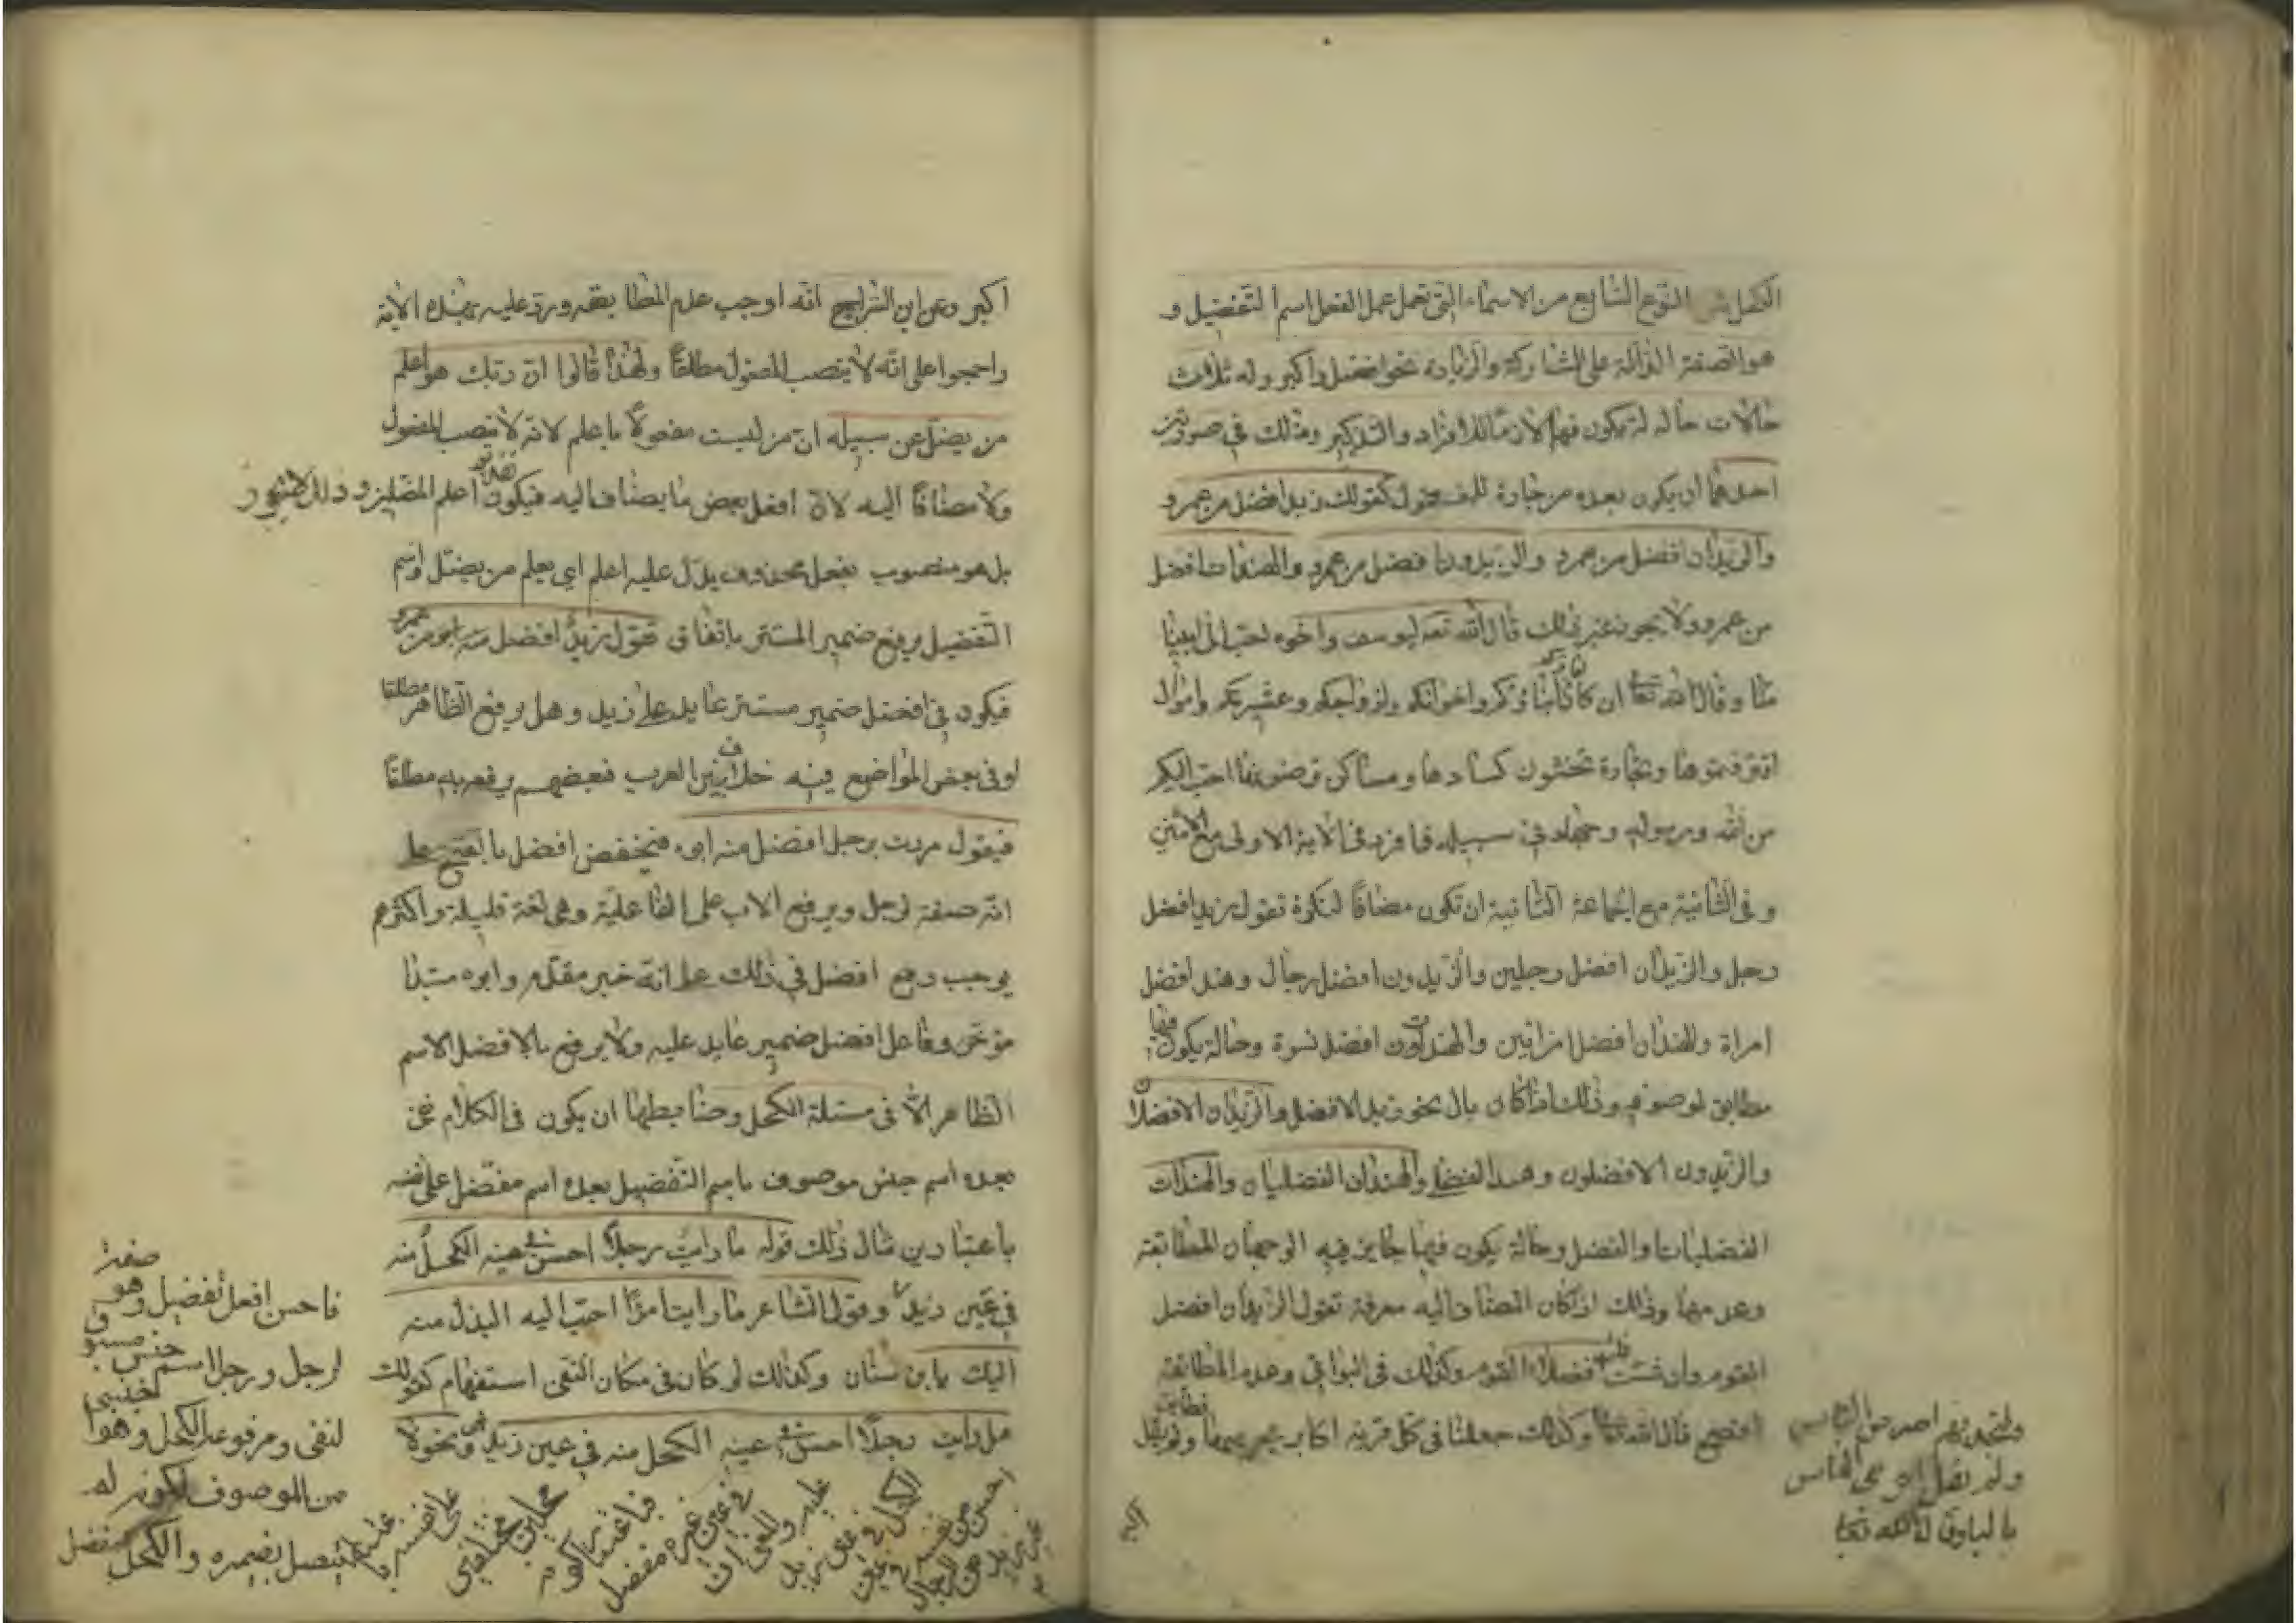 الكحل ش النوع السابع من الاسماء التي تعمل عمل الفعل اسم التفضيل و
هو الصفة الدالة على المشاركة والزيادة نحو افضل واكبر وله ثلاث
حالات حالة يكون فيها لازما للافراد والتذكير وذلك في صورتين
احدهما ان يكون بعده من جارة للمفضول كقولك زيد افضل من عمرو و
والزيدان افضل من عمرو والزيدون افضل من عمرو والهندات افضل
من عمرو ولا يجوز غير ذلك قال الله تعه ليوسف واخوه احب الى ابينا
منا وقال الله تعا ان كان اباؤكم وابناؤكم واخوانكم وازواجكم وعشيرتكم واموال
اقترفتموها وتجارة تخشون كسادها ومساكن ترضونها احب اليكم
من الله ورسوله وجهاد في سبيله فافرد في الاية الاولى مع الاثنين
وفي الثانية مع الجماعة الثانية ان تكون مضافا لنكرة تقول زيد افضل
رجل والزيدان افضل رجلين والزيدون افضل رجال وهند افضل
امراة والهندان افضل امراتين والهندات افضل نسوة وحالة يكون فيها
مطابق لموصوفه وذلك اذا كان بال نحو زيد الافضل والزيدان الافضلان
والزيدون الافضلون وهند الفضلى والهندان الفضليان والهندات
الفضليات والفضل وحالة يكون فيها جايز فيه الوجهان المطابقة
وعدمها وذلك اذا كان المضاف اليه معرفة تقول الزيدان افضل
القوم وان شئت قلت افضلا القوم وكذلك في البواقي وعدم المطابقة
افصح قال الله تعا وكذلك جعلنا في كل قرية اكابر مجرميها فطابق ولم يقل
ولتجدنهم احرص الناس
ولم يقل احرصي الناس
بالياء
اكبر
اكبر وعن ابن السراج انه اوجب عدم المطابقة ورد عليه بهذه الاية
واجمعوا على انه لا ينصب المفعول مطلقا ولهذا قالوا ان ربك هو اعلم
من يضل عن سبيله ان من ليست مفعولا باعلم لانه لا ينصب المفعول
ولا مضافا اليه لان افعل بعض ما يضاف اليه فيكون تقديره اعلم المضلين وذلك لا يجوز
بل هو منصوب بفعل محذوف يدل عليه اعلم اي يعلم من يضل واسم
التفضيل يرفع ضمير المستتر باتفاق تقول زيد افضل من عمرو
فيكون في افضل ضمير مستتر عايد على زيد وهل يرفع الظاهر مطلقا
او في بعض المواضع فيه خلاف بين العرب فبعضهم يرفعه به مطلقا
فيقول مررت برجل افضل منه ابوه فيخفض افضل بالفتح على
انه صفة لرجل ويرفع الاب على الفاعلية وهي لغة قليلة واكثرهم
يوجب رفع افضل في ذلك على انه خبر مقدم وابوه مبتدا
مؤخر وفاعل افضل ضمير عايد عليه ولا يرفع بالافضل الاسم
الظاهر الا في مسئلة الكحل وضابطها ان يكون في الكلام نفي
بعده اسم جنس موصوف باسم التفضيل بعده اسم مفضل على نفسه
باعتبارين مثال ذلك قوله ما رايت رجلا احسن في عينه الكحل منه
في عين زيد وقول الشاعر ما رايت امرأ احب اليه البذل منه
اليك يا ابن سنان وكذلك لو كان في مكان النفي استفهام كقولك
هل رايت رجلا احسن في عينه الكحل منه في عين زيد او نهي نحو لا
صفة
فاحسن افعل تفضيل وهو
لرجل ورجل اسم جنس مسبوق
لنفي ومرفوعه الكحل وهو اجنبي
من الموصوف لكونه لم
يتصل بضميره والكحل مفضل
على نفسه باعتبار
محلين مختلفين
فباعتبار كونه
في عين غيره مفضل
عليه
الكحل في عين زيد
احسن من نفسه في عين